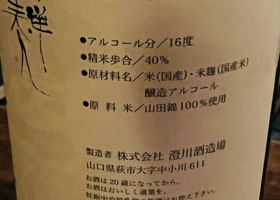 ●アルコール分／16度
●精米歩合／40%
●原材料名／米(国産)・米麹(国産米)
醸造アルコール
●原料米／山田錦100%使用
製造者 株式会社 澄川酒造場
山口県萩市大字中小川611
お酒は20歳になってから。
お酒はおいしく適量を。